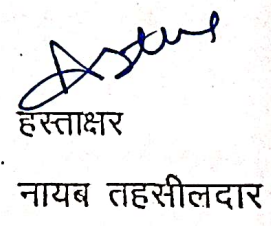 हस्ताक्षर
नायब तहसीलदार